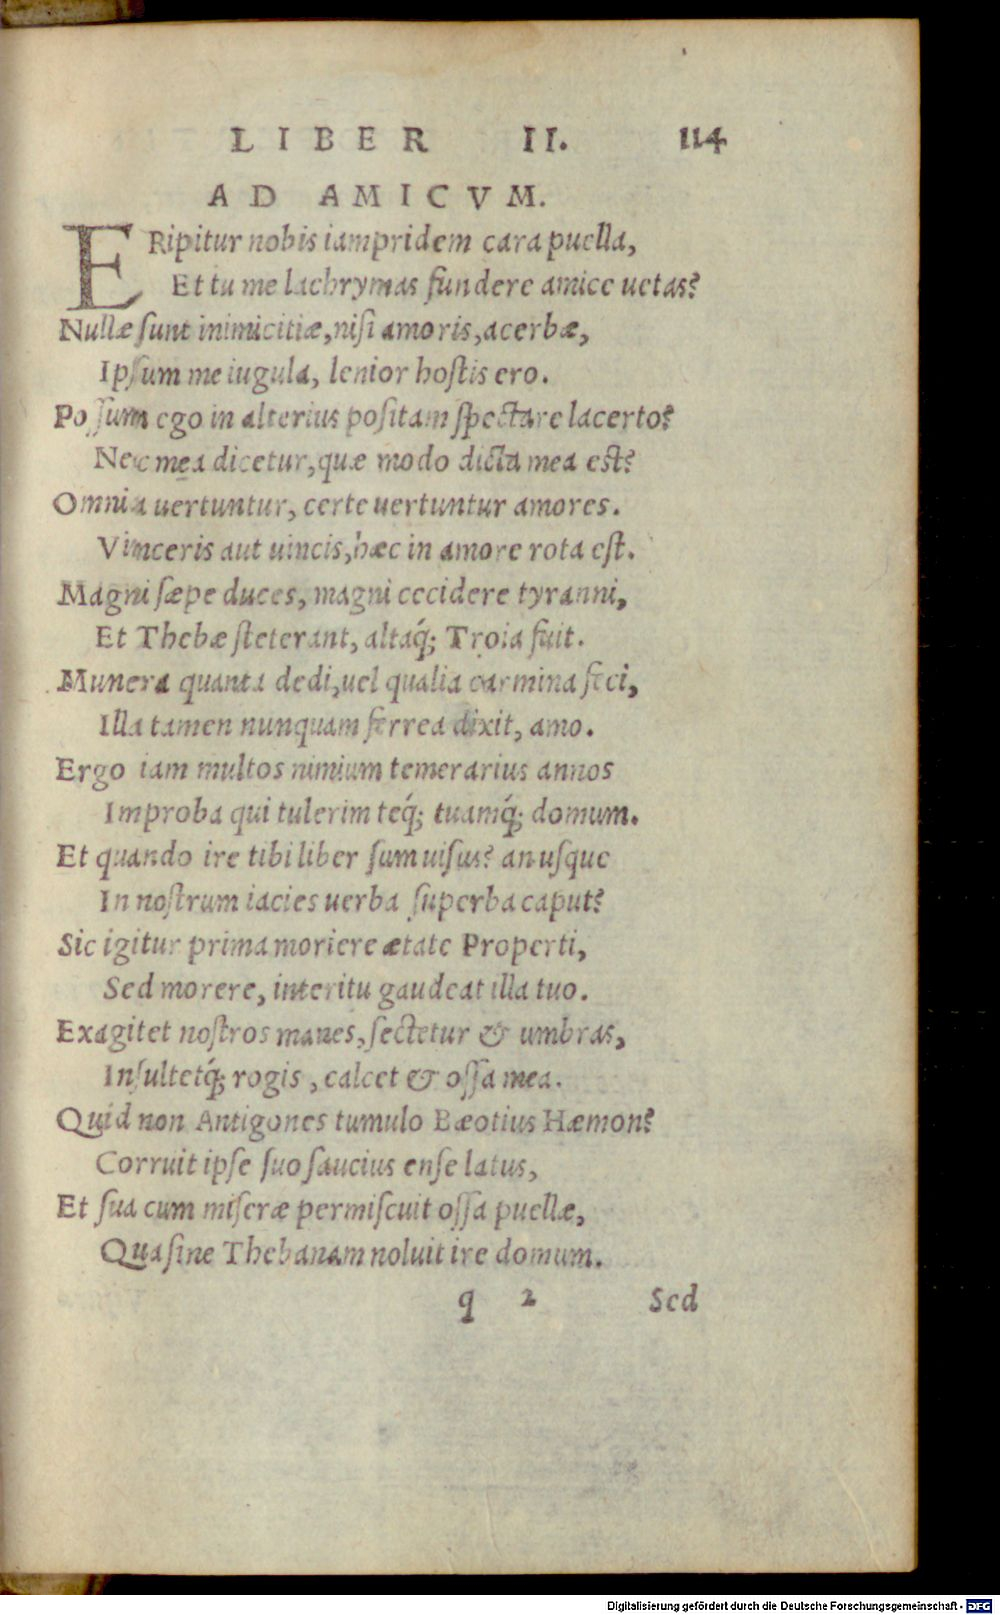 LIBER II. 114
AD AMICVM.
ERipitur nobis iampridem cara puella,
Et tu me lachrymas fundere amice uetas?
Nullæ sunt inimicitiæ, nisi amoris, acerbæ,
Ipsum me iugula, lenior hostis ero.
Possum ego in alterius positam spectare lacerto?
Nec mea dicetur, quæ modo dicta mea est?
Omnia uertuntur, certe uertuntur amores.
Vinceris aut uincis, hæc in amore rota est.
Magni sæpe duces, magni cecidere tyranni,
Et Thebæ steterant, altaq́; Troia fuit.
Munera quanta dedi, uel qualia carmina feci,
Illa tamen nunquam ferrea dixit, amo.
Ergo iam multos nimium temerarius annos
Improba qui tulerim teq́; tuamq́; domum.
Et quando ire tibi liber sum uisus? an usque
In nostrum iacies uerba superba caput?
Sic igitur prima moriere ætate Properti,
Sed morere, interitu gaudeat illa tuo.
Exagitet nostros manes, sectetur & umbras,
Insultetq́; rogis, calcet & ossa mea.
Quid non Antigones tumulo Bæotius Hæmon?
Corruit ipse suo saucius ense latus,
Et sua cum miseræ permiscuit ossa puellæ,
Qua sine Thebanam noluit ire domum.
q 2 Sed
Digitalisierung gefördert durch die Deutsche Forschungsgemeinschaft - DFG